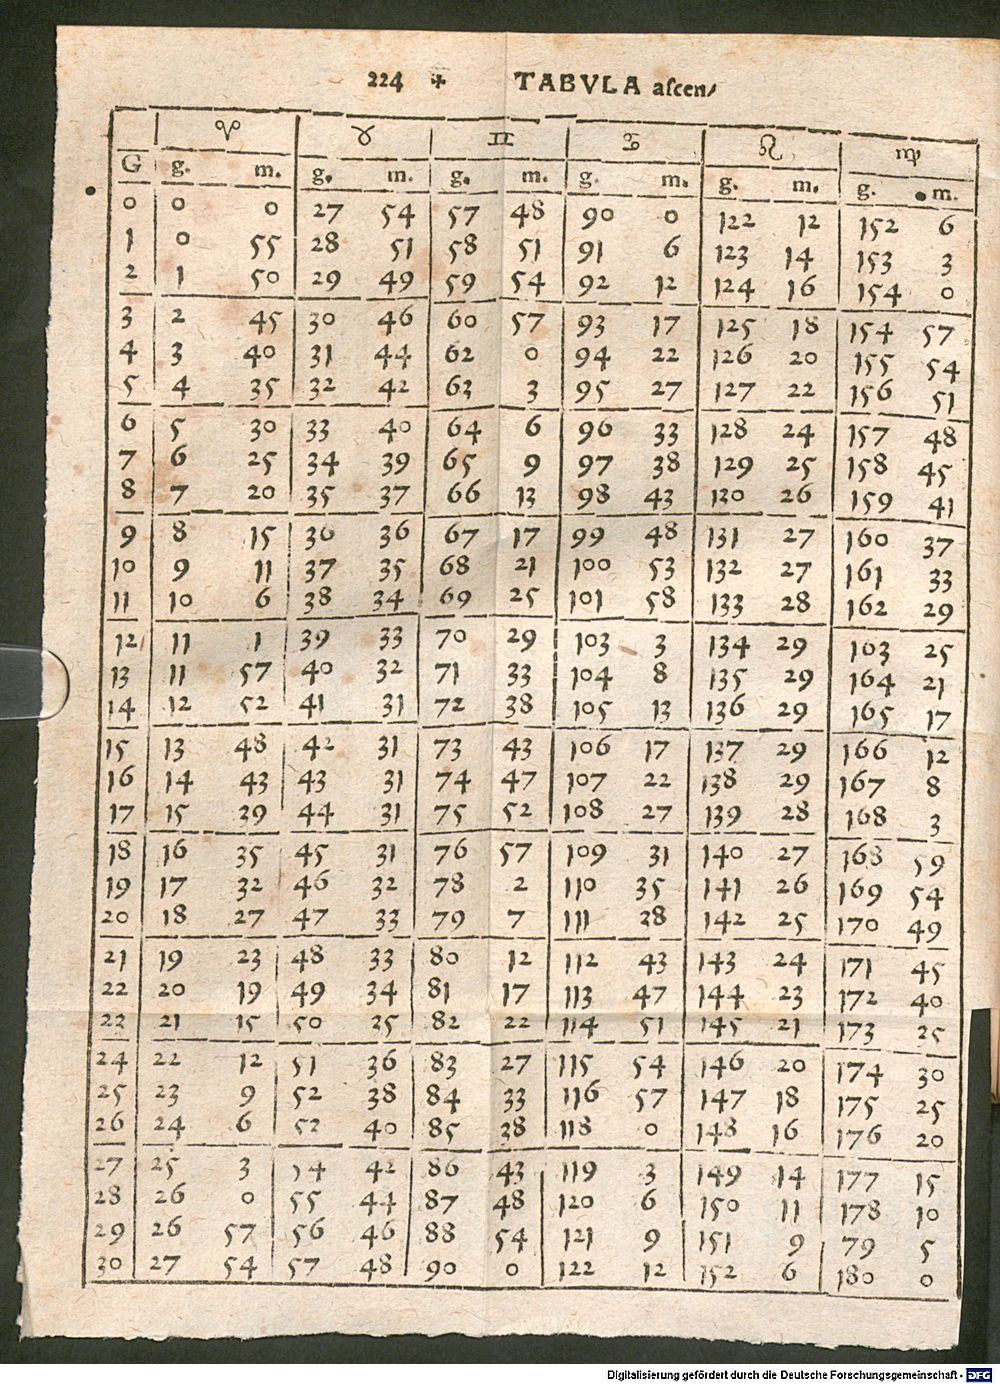 224 ✠ TABVLA aſcen⸗
♈ ♉ ♊ ♋ ♌ ♍
G g. m. g. m. g. m. g. m. g. m. g. m.
0 0 0 27 54 57 48 90 0 122 12 152 6
1 0 55 28 51 58 51 91 6 123 14 153 3
2 1 50 29 49 59 54 92 12 124 16 154 0
3 2 45 30 46 60 57 93 17 125 18 154 57
4 3 40 31 44 62 0 94 22 126 20 155 54
5 4 35 32 42 63 3 95 27 127 22 156 51
6 5 30 33 40 64 6 96 33 128 24 157 48
7 6 25 34 39 65 9 97 38 129 25 158 45
8 7 20 35 37 66 13 98 43 130 26 159 41
9 8 15 36 36 67 17 99 48 131 27 160 37
10 9 11 37 35 68 21 100 53 132 27 161 33
11 10 6 38 34 69 25 101 58 133 28 162 29
12 11 1 39 33 70 29 103 3 134 29 163 25
13 11 57 40 32 71 33 104 8 135 29 164 21
14 12 52 41 31 72 38 105 13 136 29 165 17
15 13 48 42 31 73 43 106 17 137 29 166 12
16 14 43 43 31 74 47 107 22 138 29 167 8
17 15 39 44 31 75 52 108 27 139 28 168 3
18 16 35 45 31 76 57 109 31 140 27 168 59
19 17 32 46 32 78 2 110 35 141 26 169 54
20 18 27 47 33 79 7 111 38 142 25 170 49
21 19 23 48 33 80 12 112 43 143 24 171 45
22 20 19 49 34 81 17 113 47 144 23 172 40
23 21 15 50 35 82 22 114 51 145 21 173 25
24 22 12 51 36 83 27 115 54 146 20 174 30
25 23 9 52 38 84 33 116 57 147 18 175 25
26 24 6 52 40 85 38 118 0 148 16 176 20
27 25 3 54 42 86 43 119 3 149 14 177 15
28 26 0 55 44 87 48 120 6 150 11 178 10
29 26 57 56 46 88 54 121 9 151 9 79 5
30 27 54 57 48 90 0 122 12 152 6 180 0
Digitalisierung gefördert durch die Deutsche Forschungsgemeinschaft - DFG